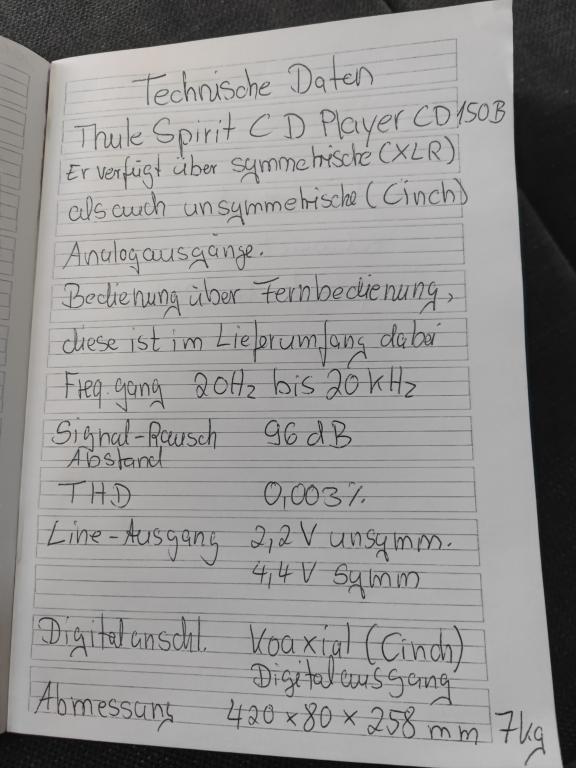 Technische Daten
Thule Spirit CD Player CD150B
Er verfügt über symmetrische (XLR)
als auch unsymmetrische (Cinch)
Analogausgänge.
Bedienung über Fernbedienung,
diese ist im Lieferumfang dabei
Freq.gang 20Hz bis 20kHz
Signal-Rausch 96 dB
Abstand
THD 0,003%
Line-Ausgang 2,2V unsymm.
4,4V symm
Digitalanschl. Koaxial (Cinch)
Digitalausgang
Abmessung 420 x 80 x 258 mm 7kg